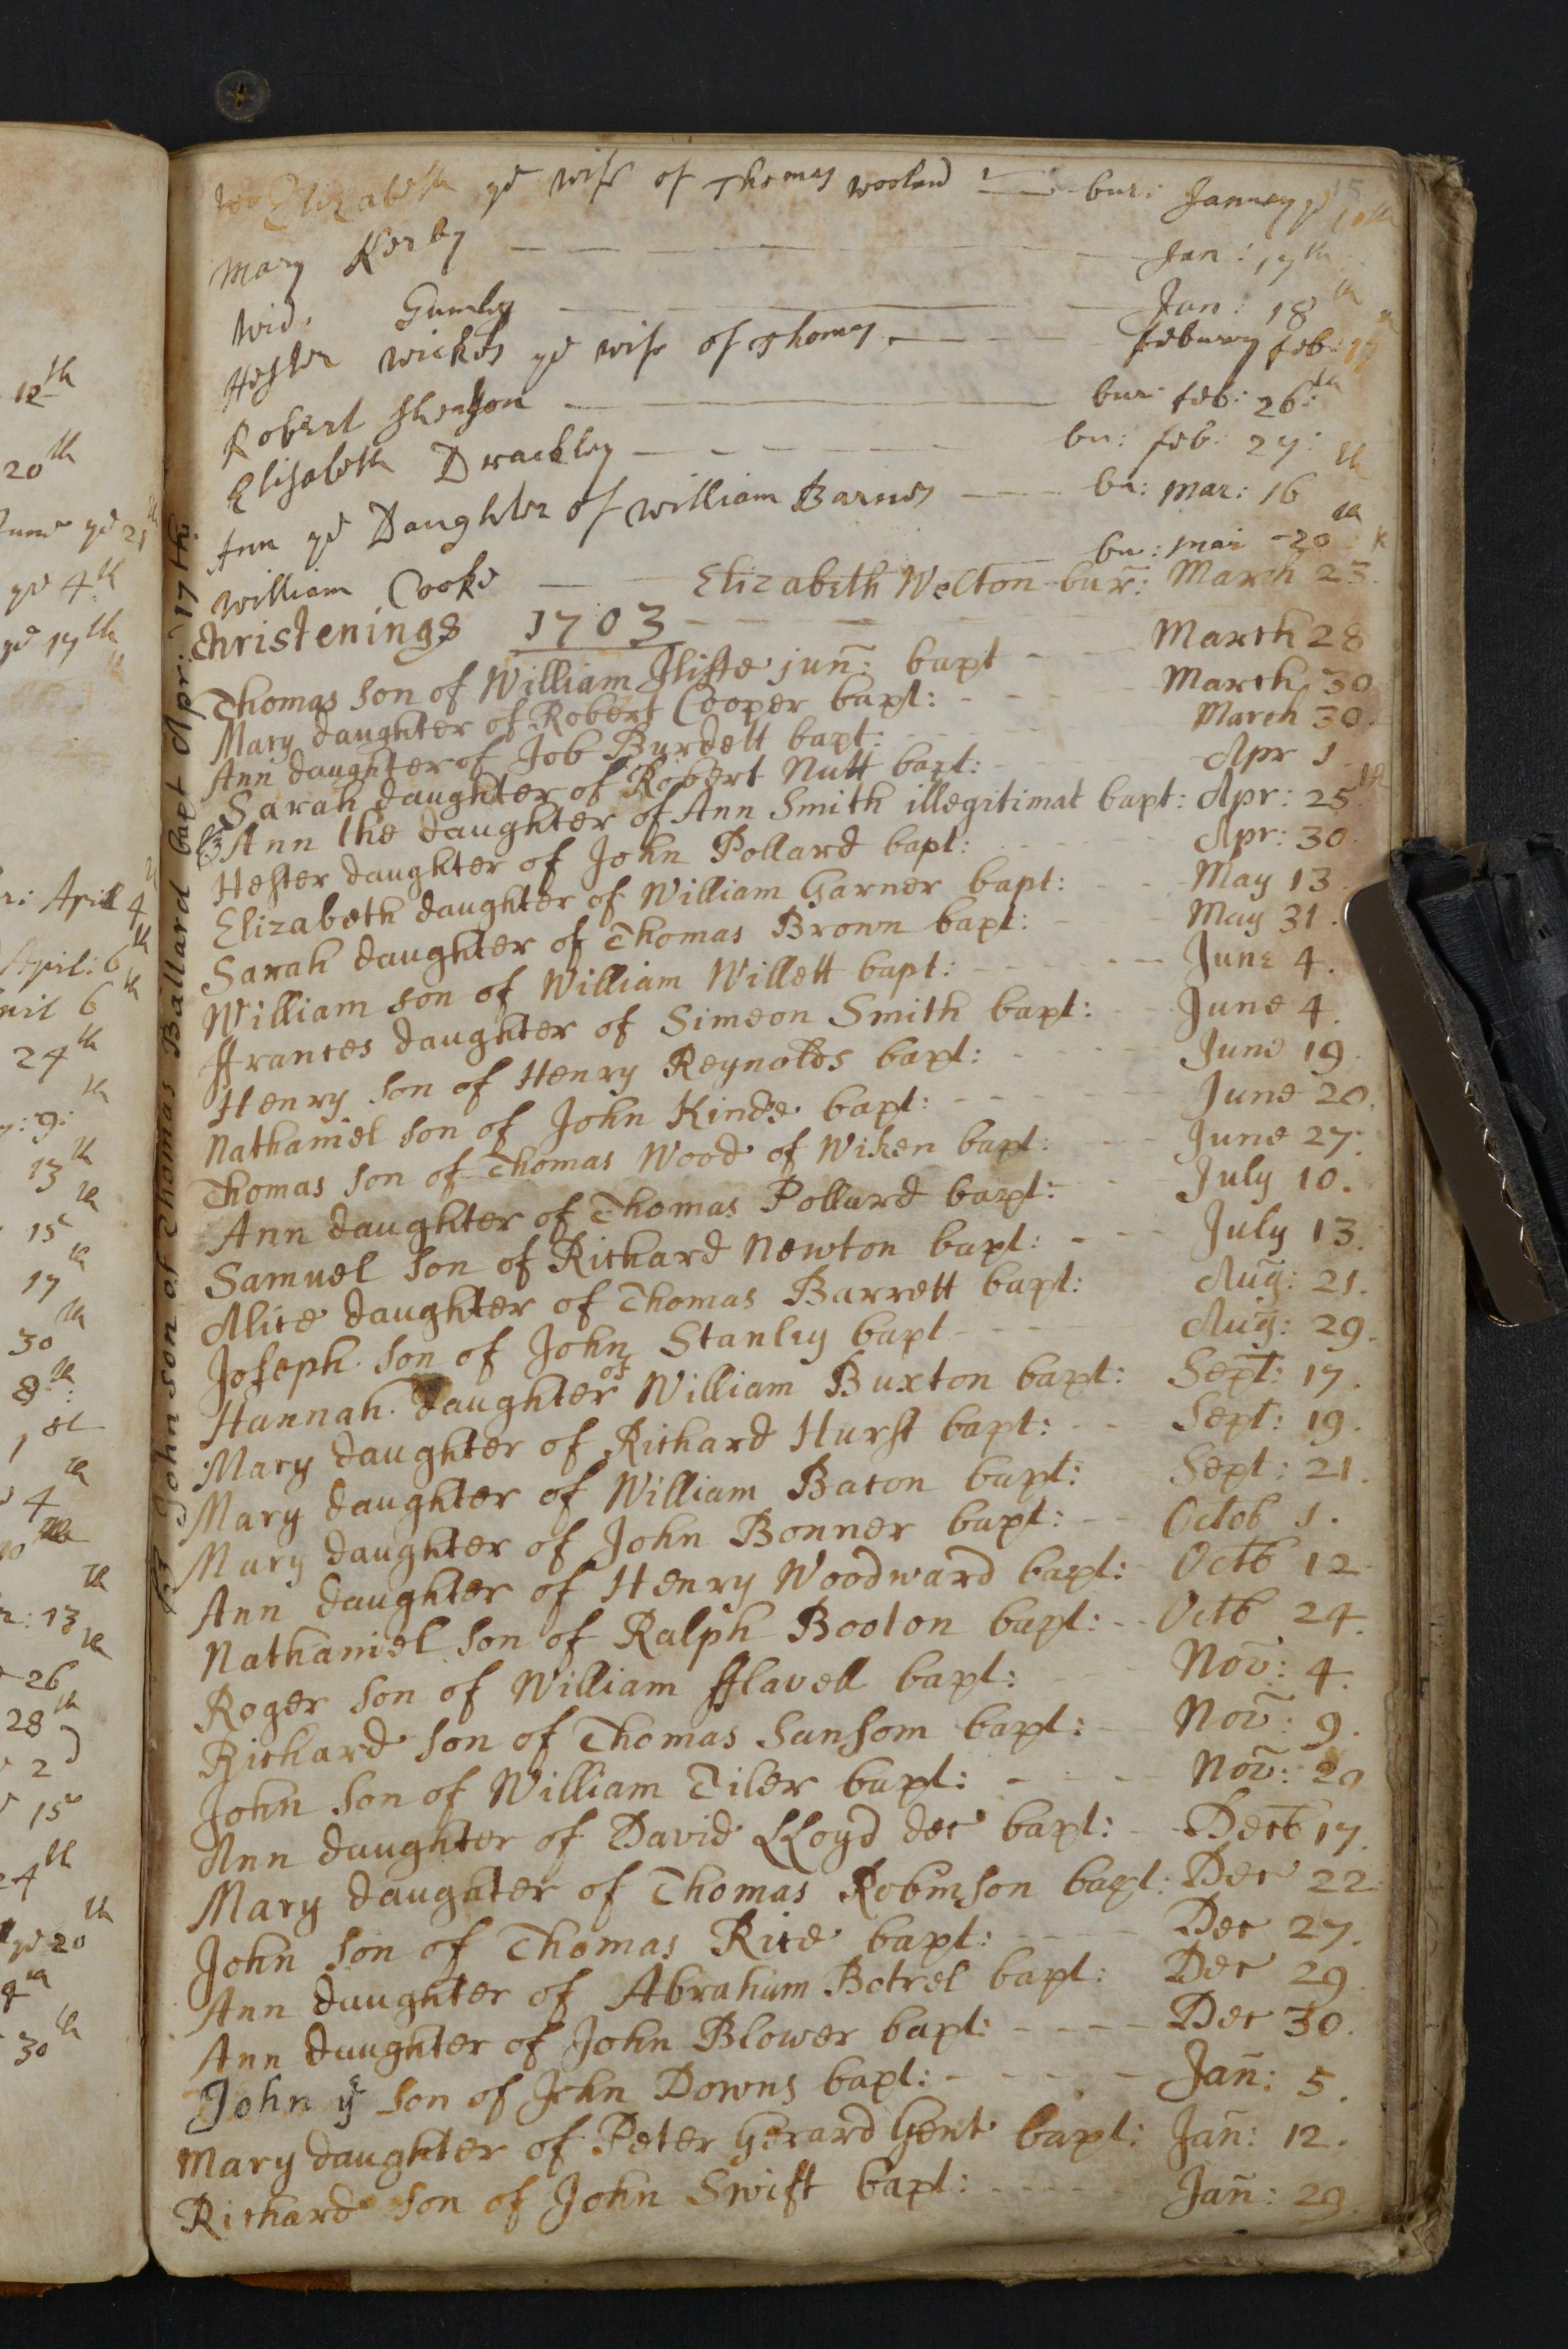 12th
20th
ye 21
ye 4th
ye 17th
April 4
April: 6th
6th
24th
9:th
13th
15th
17th
30th
8th:
1st
4th
13th
26
28th
2d
15
24th
ye 20th
30th
Elizabeth ye wife of Thomas wooland bur: January ye 10th
Mary Kerby Jan: 17th
Wid. Gumley Jan: 18th
Hester Wickes ye wife of Thomas feburary feb: 17
Robert Shenson bur: feb: 26:th
Elisabeth Drackley bu: feb: 27:
Ann ye Daughter of William Barnes bu: mar: 16th
William Cooke bu: mar 20th
Elizabeth Welton bur: March 23.
Christenings 1703
Thomas son of William Iliffe jun: bapt March 28
Mary daughter of Robert Cooper bapt: March 30
Ann daughter of Job Burdett bapt: March 30.
Sarah daughter of Robert Nutt bapt: Apr 1
Ann the daughter of Ann Smith illegitimat bapt: Apr: 25th
Hester daughter of John Pollard bapt: Apr: 30.
Elizabeth daughter of William Garner bapt: May 13.
Sarah daughter of Thomas Brown bapt: May 31.
William son of William Willett bapt: June 4.
Frances daughter of Simeon Smith bapt: June 4.
Henry son of Henry Reynolds bapt: June 19.
Nathaniel son of John Kinde bapt: June 20.
Thomas son of Thomas Wood of Wiken bapt: June 27:
Ann daughter of Thomas Pollard bapt: July 10.
Samuel son of Richard Newton bapt: July 13.
Alice daughter of Thomas Barrett bapt: Aug: 21.
Joseph son of John Stanley bapt Aug: 29.
Hannah daughter of William Buxton bapt: Sept: 17.
Mary daughter of Richard Hurst bapt: Sept: 19.
Mary daughter of William Bacon bapt: Sept: 21.
Mary daughter of John Bonner bapt: Octob 1.
Ann daughter of Henry Woodward bapt: Octb 12
Nathaniel son of Ralph Booton bapt: Octb 24.
Roger son of William Flavell bapt: Nov: 4.
Richard son of Thomas Sansom bapt: Nov: 9.
John son of William Tiler bapt: Nov: 20
Ann daughter of David LLoyd dec bapt: Decb 17.
Mary daughter of Thomas Robinson bapt: Dec 22
John son of Thomas Rice bapt: Dec 27.
Ann daughter of Abraham Botrel bapt: Dec 29
Ann daughter of John Blower bapt: Dec 30.
John ye son of John Downs bapt: Jan: 5.
Mary daughter of Peter Gerard Gent bapt: Jan: 12.
Richard son of John Swift bapt: Jan: 29.
John son of Thomas Ballard bapt Apr: 17th: